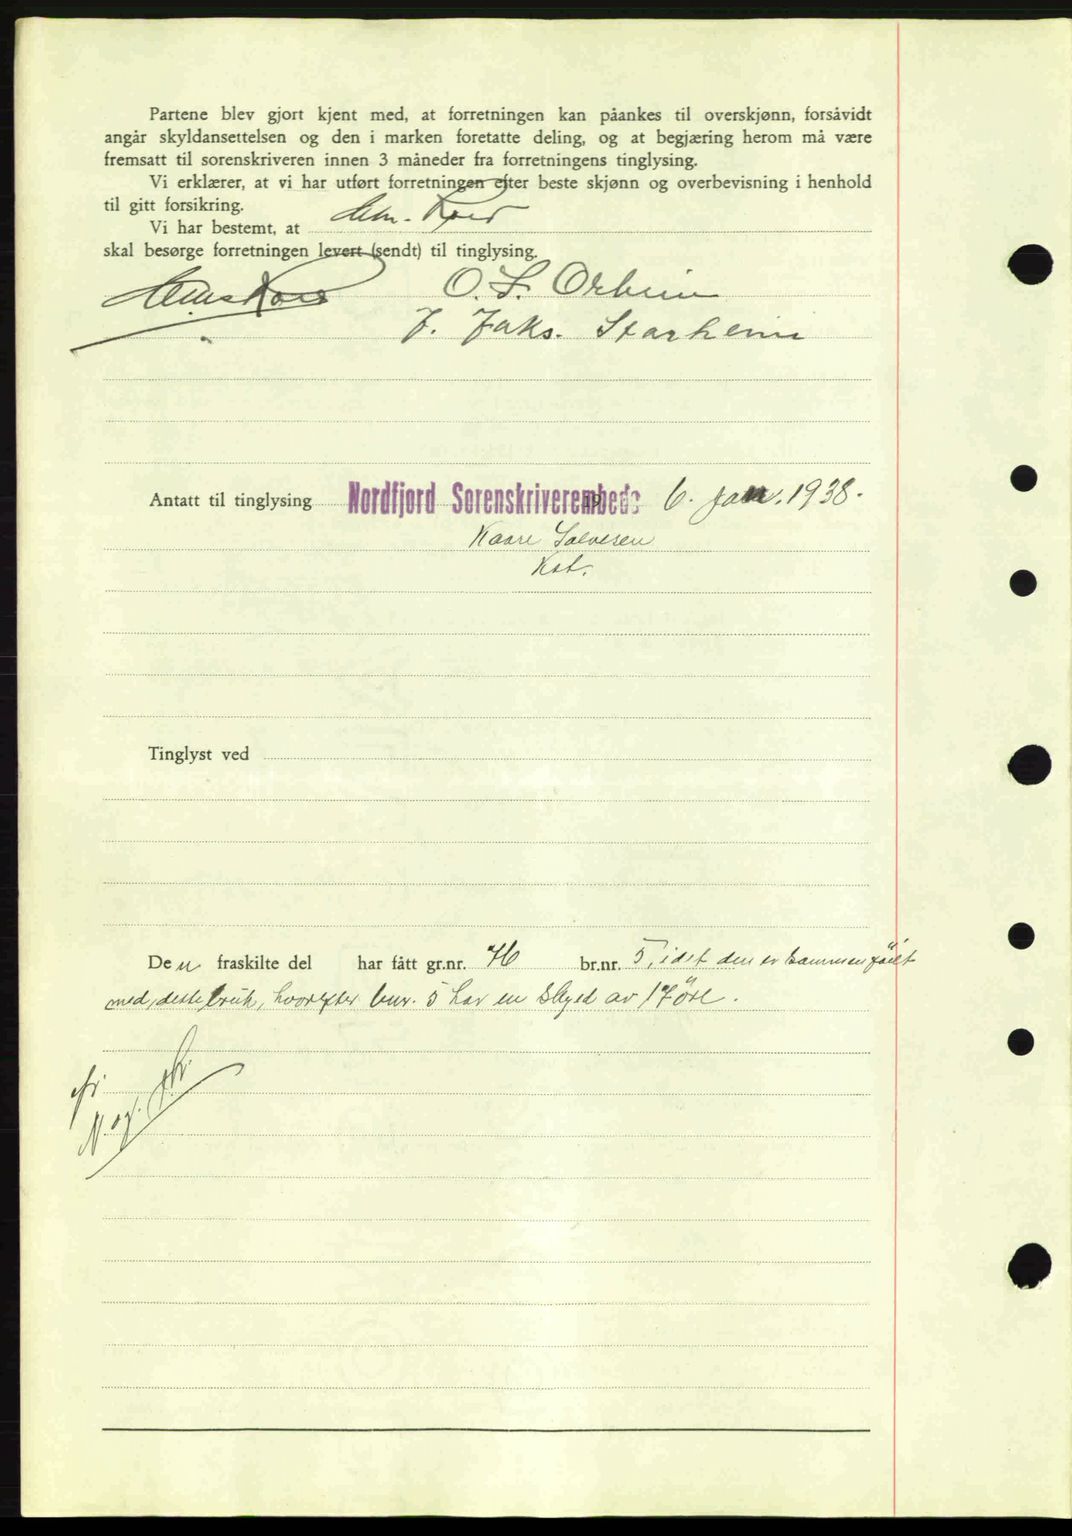 Partene blev gjort kjent med, at forretningen kan påankes til overskjønn, forsåvidt
angår skyldansettelsen og den i marken foretatte deling, og at begjæring herom må være
fremsatt til sorenskriveren innen 3 måneder fra forretningens tinglysing.
Vi erklærer, at vi har utført forretningen efter beste skjønn og overbevisning i henhold
til gitt forsikring.
Vi har bestemt, at
skal besørge forretningen levert (sendt) til tinglysing.
O. S. Orheim
J. Jaks. Starheim
Antatt til tinglysing Nordfjord Sorenskriverembede 19 6. jan. 1938.
Kaare Salvesen
Kst.
Tinglyst ved
Den fraskilte del har fått gr.nr. 76 br.nr. 5, idet den er sammenføiet
med dette bruk, hvorefter bnr. 5 har en skyld av 17 øre.